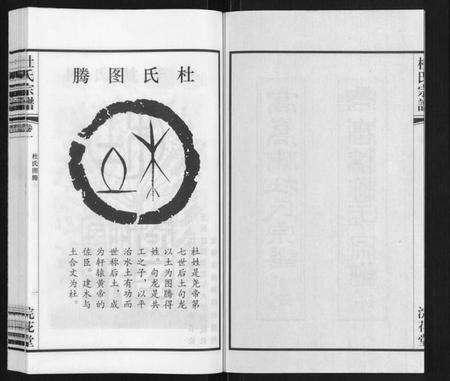 杜氏图腾
杜姓是尧帝第
七世后土句龙
以土为图腾得
姓。句龙是共
工之子，以平
治水土有功而
世称后土，成
为轩辕黄帝的
佐臣。建木与
土合文为杜。
杜氏宗谱
杜氏图腾
浣花堂
杜氏宗谱
浣花堂